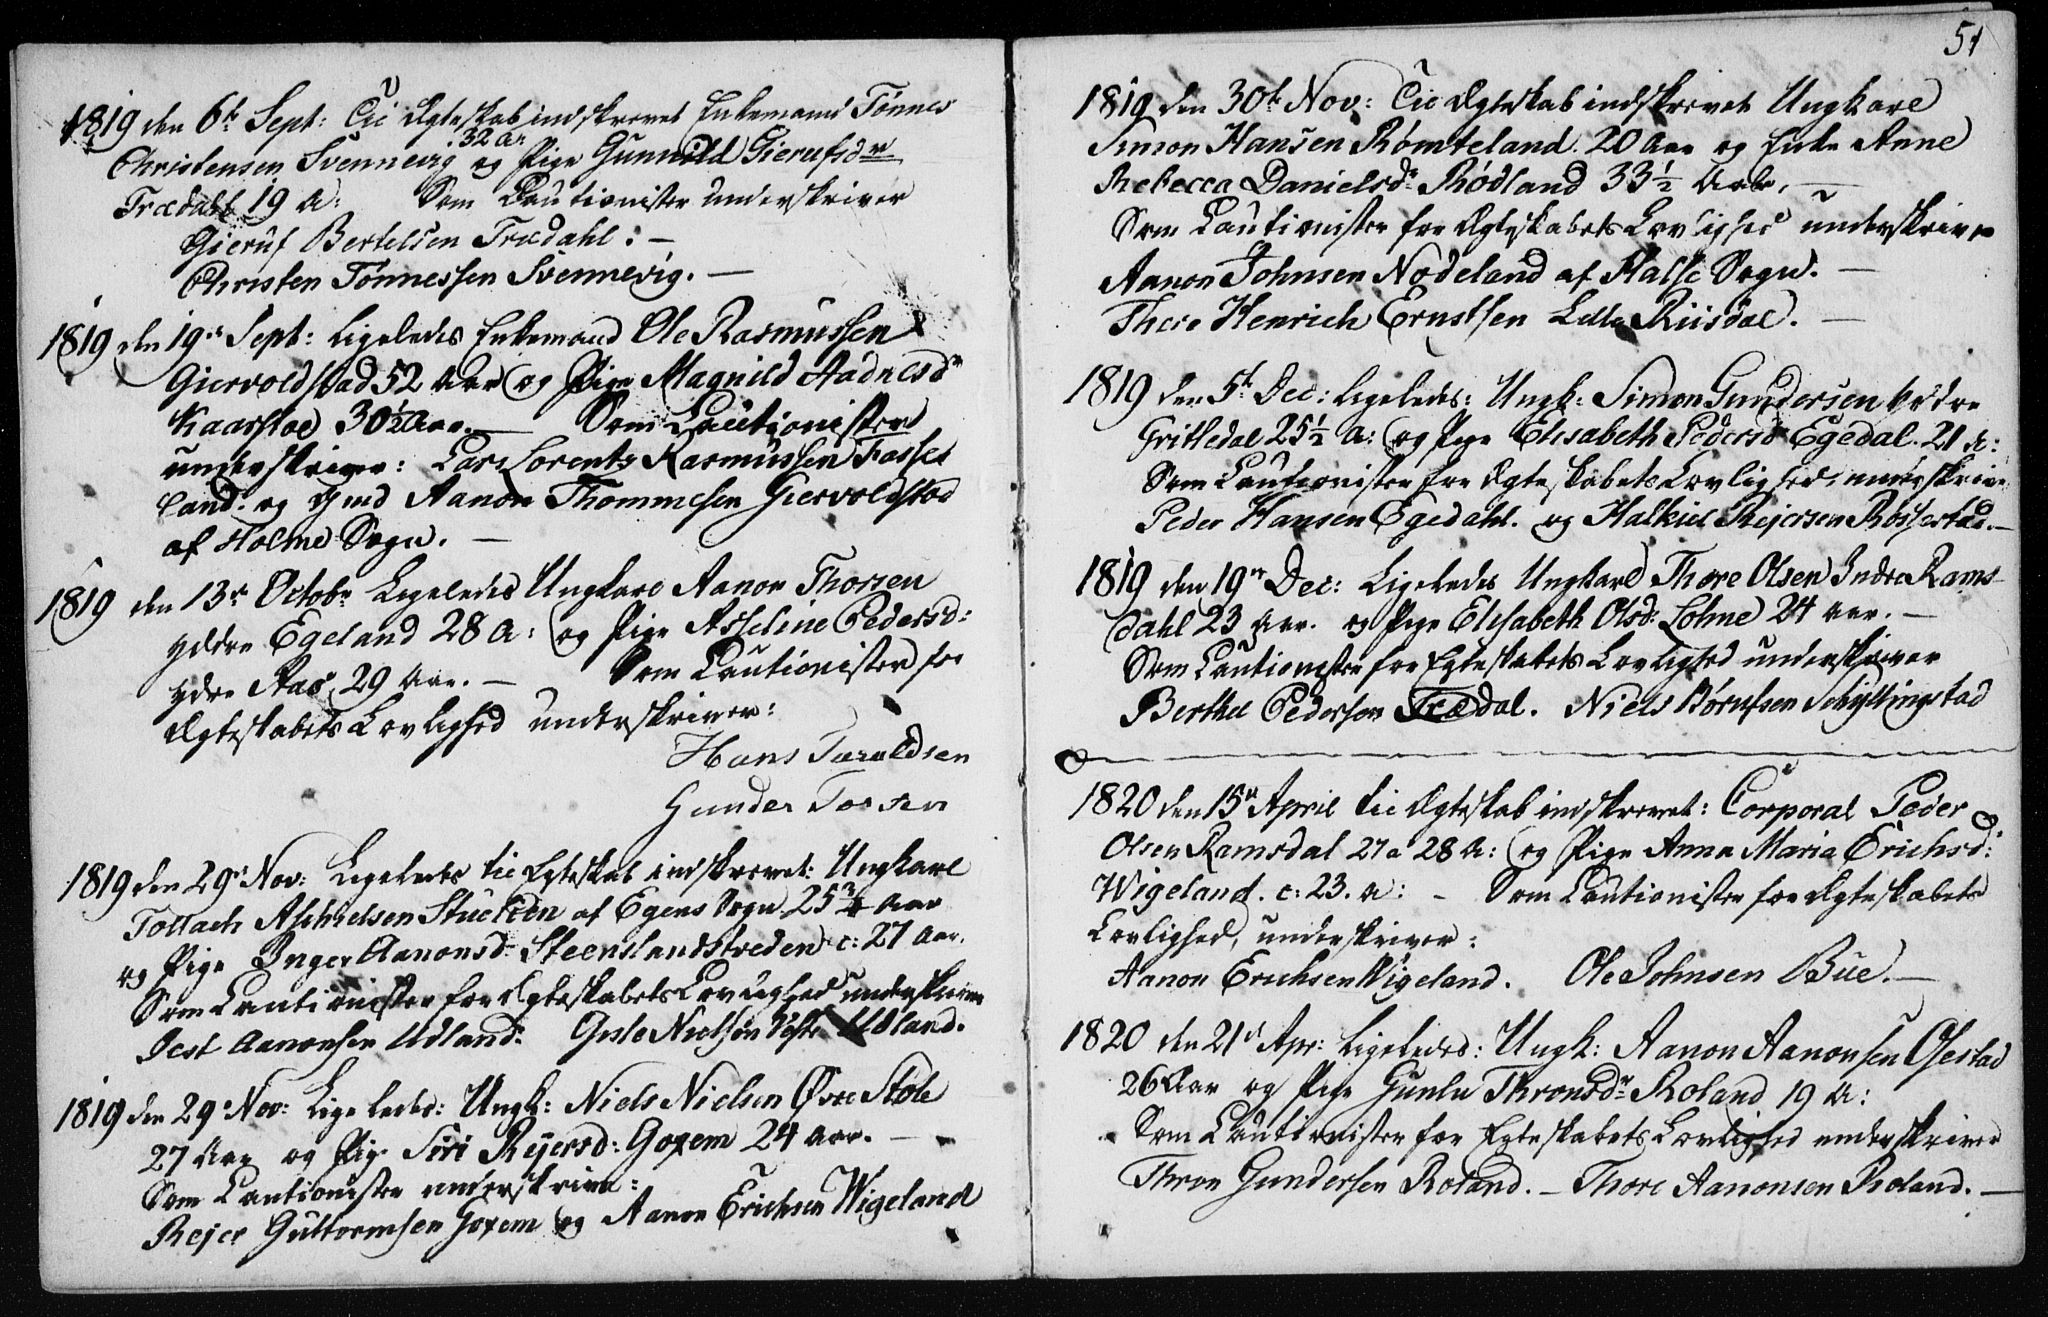 1819 den 6t Sept: Til Ægteskab indskrevet Enkemand Tönnes
Christensen Svennevig 32 a: og Pige Gunnild Gierufsdr
Trædahl 19 A: Som Cautionister underskriver
Gieruf Bertelsen Trædahl: —
Christen Tönnessen Svennevig. —
1819 den 19de Sept: Ligeledes Enkemand Ole Rasmussen
Giervoldstad 52 Aar og Pige Magnild Aadnesdr
Kaarstoe 30½ Aar. — Som Cautionister
underskriver: Lars Lorentz Rasmussen Fasse
land. og Aanon Thommesen Giervoldstad
af Holme Sogn. —
1819 den 13de Octobr Ligeledes Ungkarl Aanon Thorsen
yddre Egeland 28 A: og Pige Asseline Pedersd:
ydre Aas 29 Aar. — Som Cautionister for
Ægteskabets Lovlighed underskriver:
Hans Taraldsen
Gunder Tossen
1819 den 29de Nov: Ligeledes til Ægteskab indskrevet: Ungkarl
Tollach Aschielsen Stucken af Egens Sogn 25¾ Aar
og Pige Inger Aanonsd: Steenslandstreden c: 27 Aar.
Som Cautionister for Ægteskabets Lovlighed underskriver
Jest Aanonsen Udland: Gisle Nielsen Udland.
1819 den 29de Nov: Ligeledes: Ungk: Niels Nielsen Øvre Støle
27 Aar og Pige Siri Reyersd: Goxem 24 Aar. —
Som Cautionister underskriver:
Rejer Guttormsen Goxem og Aanon Erichsen Wigeland
51
1819 den 30te Nov: Til Ægteskab indskrevet Ungkarl
Simon Hansen Römteland 20 Aar og Enke Anne
Rebecca Danielsdr Rödland 33½ Aar, —
Som Cautionister for Ægteskabets Lovlighed underskriver
Aanon Johnsen Nodeland af Halse Sogn. —
There Henrich Ernstsen Lille Riisdal. —
1819 den 5te Dec: Ligeledes: Ungk: Simon Gundersen
Gritledal 25½ A: og Pige Elisabeth Pedersd Egedal 21 A:
Som Cautionister for Ægteskabets Lovlighed, underskriver
Peder Hansen Egedahl. og Halkiel Rejersen Rössestad. —
1819 den 19de Dec: Ligeledes Ungkarl Thore Olsen Indre Rams-
dahl 23 Aar. og Pige Elisabeth Olsd: Lohne 24 Aar. —
Som Cautionister for Egteskabets Lovlighed underskriver
Berthel Pedersen Trædal. Niels Börufsen Schyllingstad
1820 den 15de April til Ægteskab indskrevet: Corporal Peder
Olsen Ramsdal 27 a 28 A: og Pige Anna Maria Erichsd:
Wigeland. c: 23. A: — Som Cautionister for Ægteskabets
Lovlighed, underskriver:
Aanon Erichsen Wigeland. Ole Johnsen Büe. —
1820 den 21de Apr: Ligeledes: Ungk: Aanon Aanonsen Ofestad
26 Aar og Pige Gunlu Thronsdr Roland 19 A:
Som Cautionister for Egteskabets Lovlighed underskriver
Thron Gundersen Roland. — Thore Aanonsen Roland. —